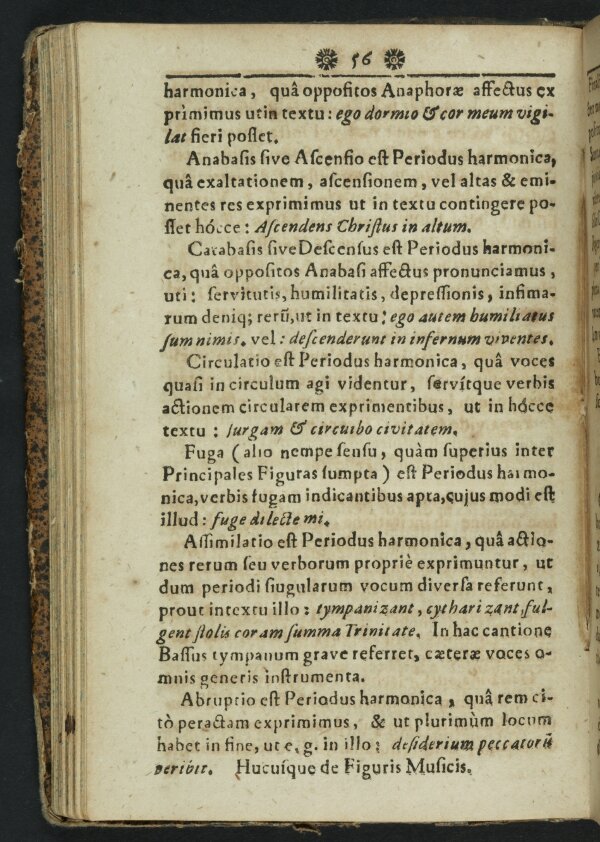 56
harmonica, quâ oppoſitos Anaphoræ affectus ex
primimus utin textu: ego dormio & cor meum vigi-
lat fieri poſſet.
Anabaſis ſive Aſcenſio eſt Periodus harmonica,
quâ exaltationem, aſcenſionem, vel altas & emi-
nentes res exprimimus ut in textu contingere po-
ſſet hócce: Aſcendens Chriſtus in altum.
Catabaſis ſive Deſcenſus eſt Periodus harmoni-
ca, quâ oppoſitos Anabaſi affectus pronunciamus,
uti: ſervitutis, humilitatis, depreſſionis, infima-
rum deniq; rerũ, ut in textu: ego autem humiliatus
ſum nimis. vel: deſcenderunt in infernum viventes.
Circulatio eſt Periodus harmonica, quâ voces
quaſi in circulum agi videntur, ſervítque verbis
actionem circularem exprimentibus, ut in hócce
textu: ſurgam & circuibo civitatem.
Fuga (alio nempe ſenſu, quàm ſuperius inter
Principales Figuras ſumpta) eſt Periodus harmo-
nica, verbis fugam indicantibus apta, cujus modi eſt
illud: fuge dilecte mi.
Aſſimilatio eſt Periodus harmonica, quâ actio-
nes rerum ſeu verborum propriè exprimuntur, ut
dum periodi ſiugularum vocum diverſa referunt,
prout intextu illo: tympanizant, cytharizant, ful-
gent ſtolis coram ſumma Trinitate. In hac cantione
Baſſus tympanum grave referret, cæteræ voces o-
mnis generis inſtrumenta.
Abruptio eſt Periodus harmonica, quâ rem ci-
tò peractam exprimimus, & ut plurimùm locum
habet in fine, ut e. g. in illo: deſiderium peccatorũ
peribit. Hucuſque de Figuris Muſicis.